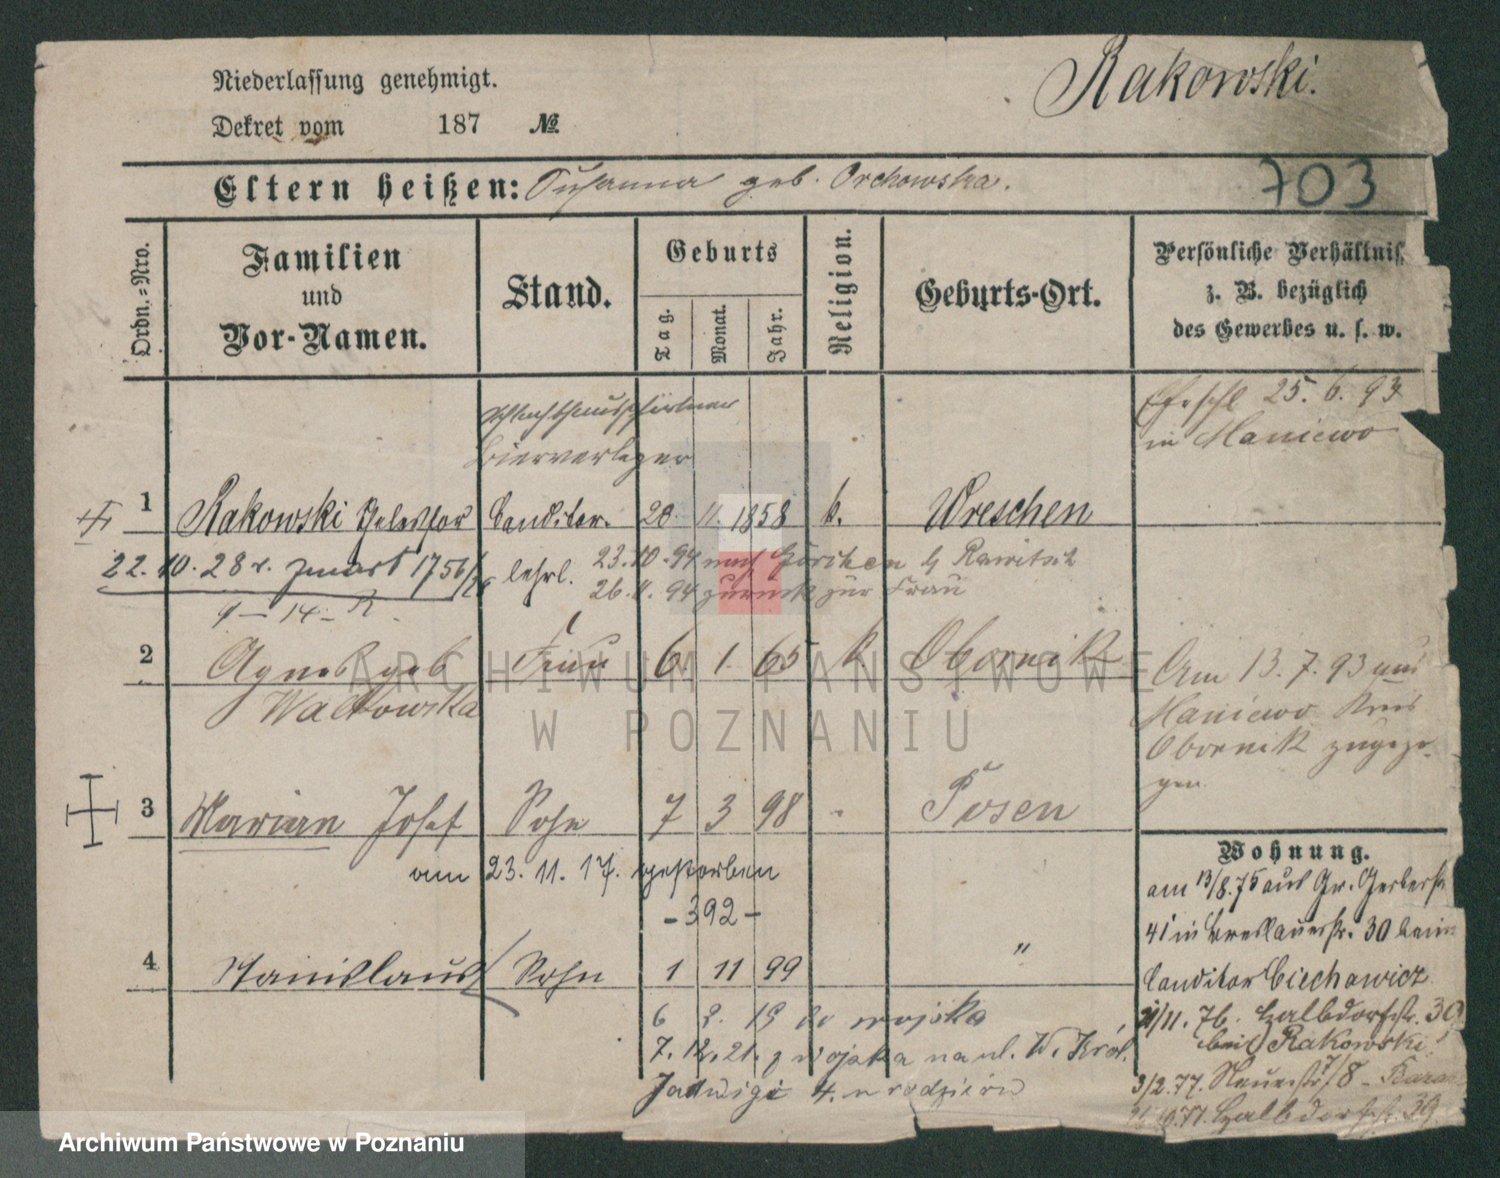 Niederlassung genehmigt.
Rakowski.
Dekret vom 187 №
Eltern heißen: Susanna geb. Orchowska.
703
Ordn.-Nro.
Familien
und
Vor-Namen.
Stand.
Geburts
Tag.
Monat.
Jahr.
Religion.
Geburts-Ort.
Persönliche Verhältniss.
z. B. bezüglich
des Gewerbes u. s. w.
25. 6. 93
in Maniewo
Bierverleger
1 Rakowski Conditor. 20. 11. 1858 k. Wreschen
22. 10. 28 r. zmarł 1756/28 lehrl. 23. 10. 94 nach Görchen b Rawitsch
9 - 14 - R. 26. 11. 94 zurück zur Frau
2 Agnes geb Frau 6. 1. 65 k. Obornik
Walkowska
Am 13. 7. 93 aus
Maniewo Kreis
Obornik zugezo-
gen
3 Marian Josef Sohn 7 3 98 " Posen
am 23. 11. 17. gestorben
- 392 -
4 Stanislaus Sohn 1 11 99 "
6 2. 19 do wojska
7. 12. 21. z wojska na ul. W. Król.
Jadwigi 4. rodziców
Wohnung.
am 13/8. 75 aus Gr. Gerberstr
41 in Breslauerstr. 30 beim
Conditor Ciechowicz
11/11. 76. Halbdorfstr. 30
bei Rakowski
3/2. 77. Neuestr 7/8 -
77. Halbdorfstr. 39
ARCHIWUM PAŃSTWOWE
W POZNANIU
Archiwum Państwowe w Poznaniu